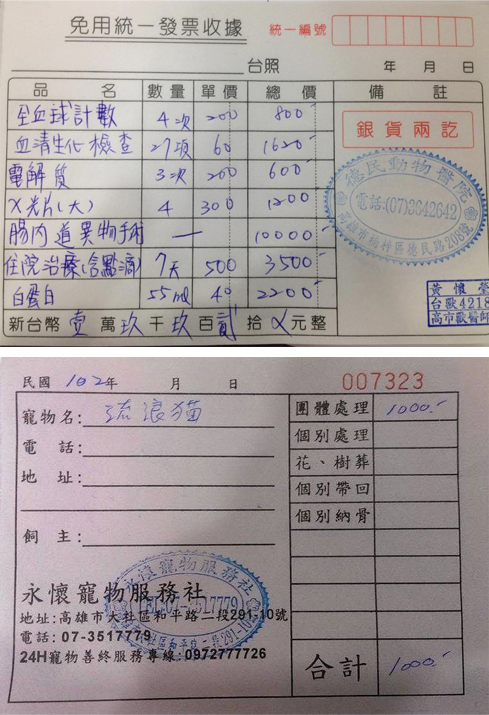 免用統一發票收據 統一編號
台照 年 月 日
品名 數量 單價 總價 備註
全血球計數 4次 200 800
血清生化檢查 27項 60 1620
電解質 3次 200 600
X光片(大) 4 300 1200
腸內道異物手術 — 10000
住院治療(含點滴) 7天 500 3500
白蛋白 55ml 40 2200
新台幣 壹 萬 玖 千 玖 百 貳 拾 元整
銀貨兩訖
德民動物醫院
電話:(07)3642642
高雄市楠梓區德民路208號
黃懷瑩
台獸4218
高市獸醫師
民國 102年 月 日 007323
寵物名: 流浪猫
電話:
地址:
飼主:
團體處理 1000.-
個別處理
花、樹葬
個別帶回
個別納骨
合計 1000.-
永懷寵物服務社
地址:高雄市大社區和平路二段291-10號
電話: 07-3517779
24H寵物善終服務專線: 0972777726
永懷寵物服務社
TEL:07-3517779